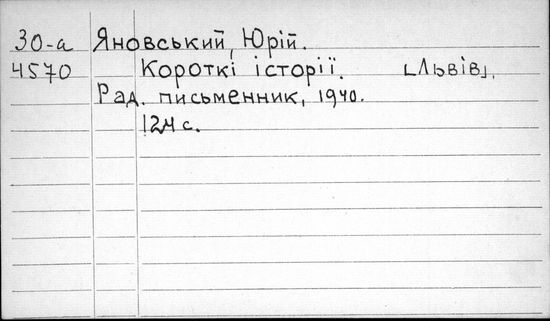 30-а Яновський, Юрій.
4570 Короткі історії. [Львів],
Рад. письменник, 1940.
124 с.